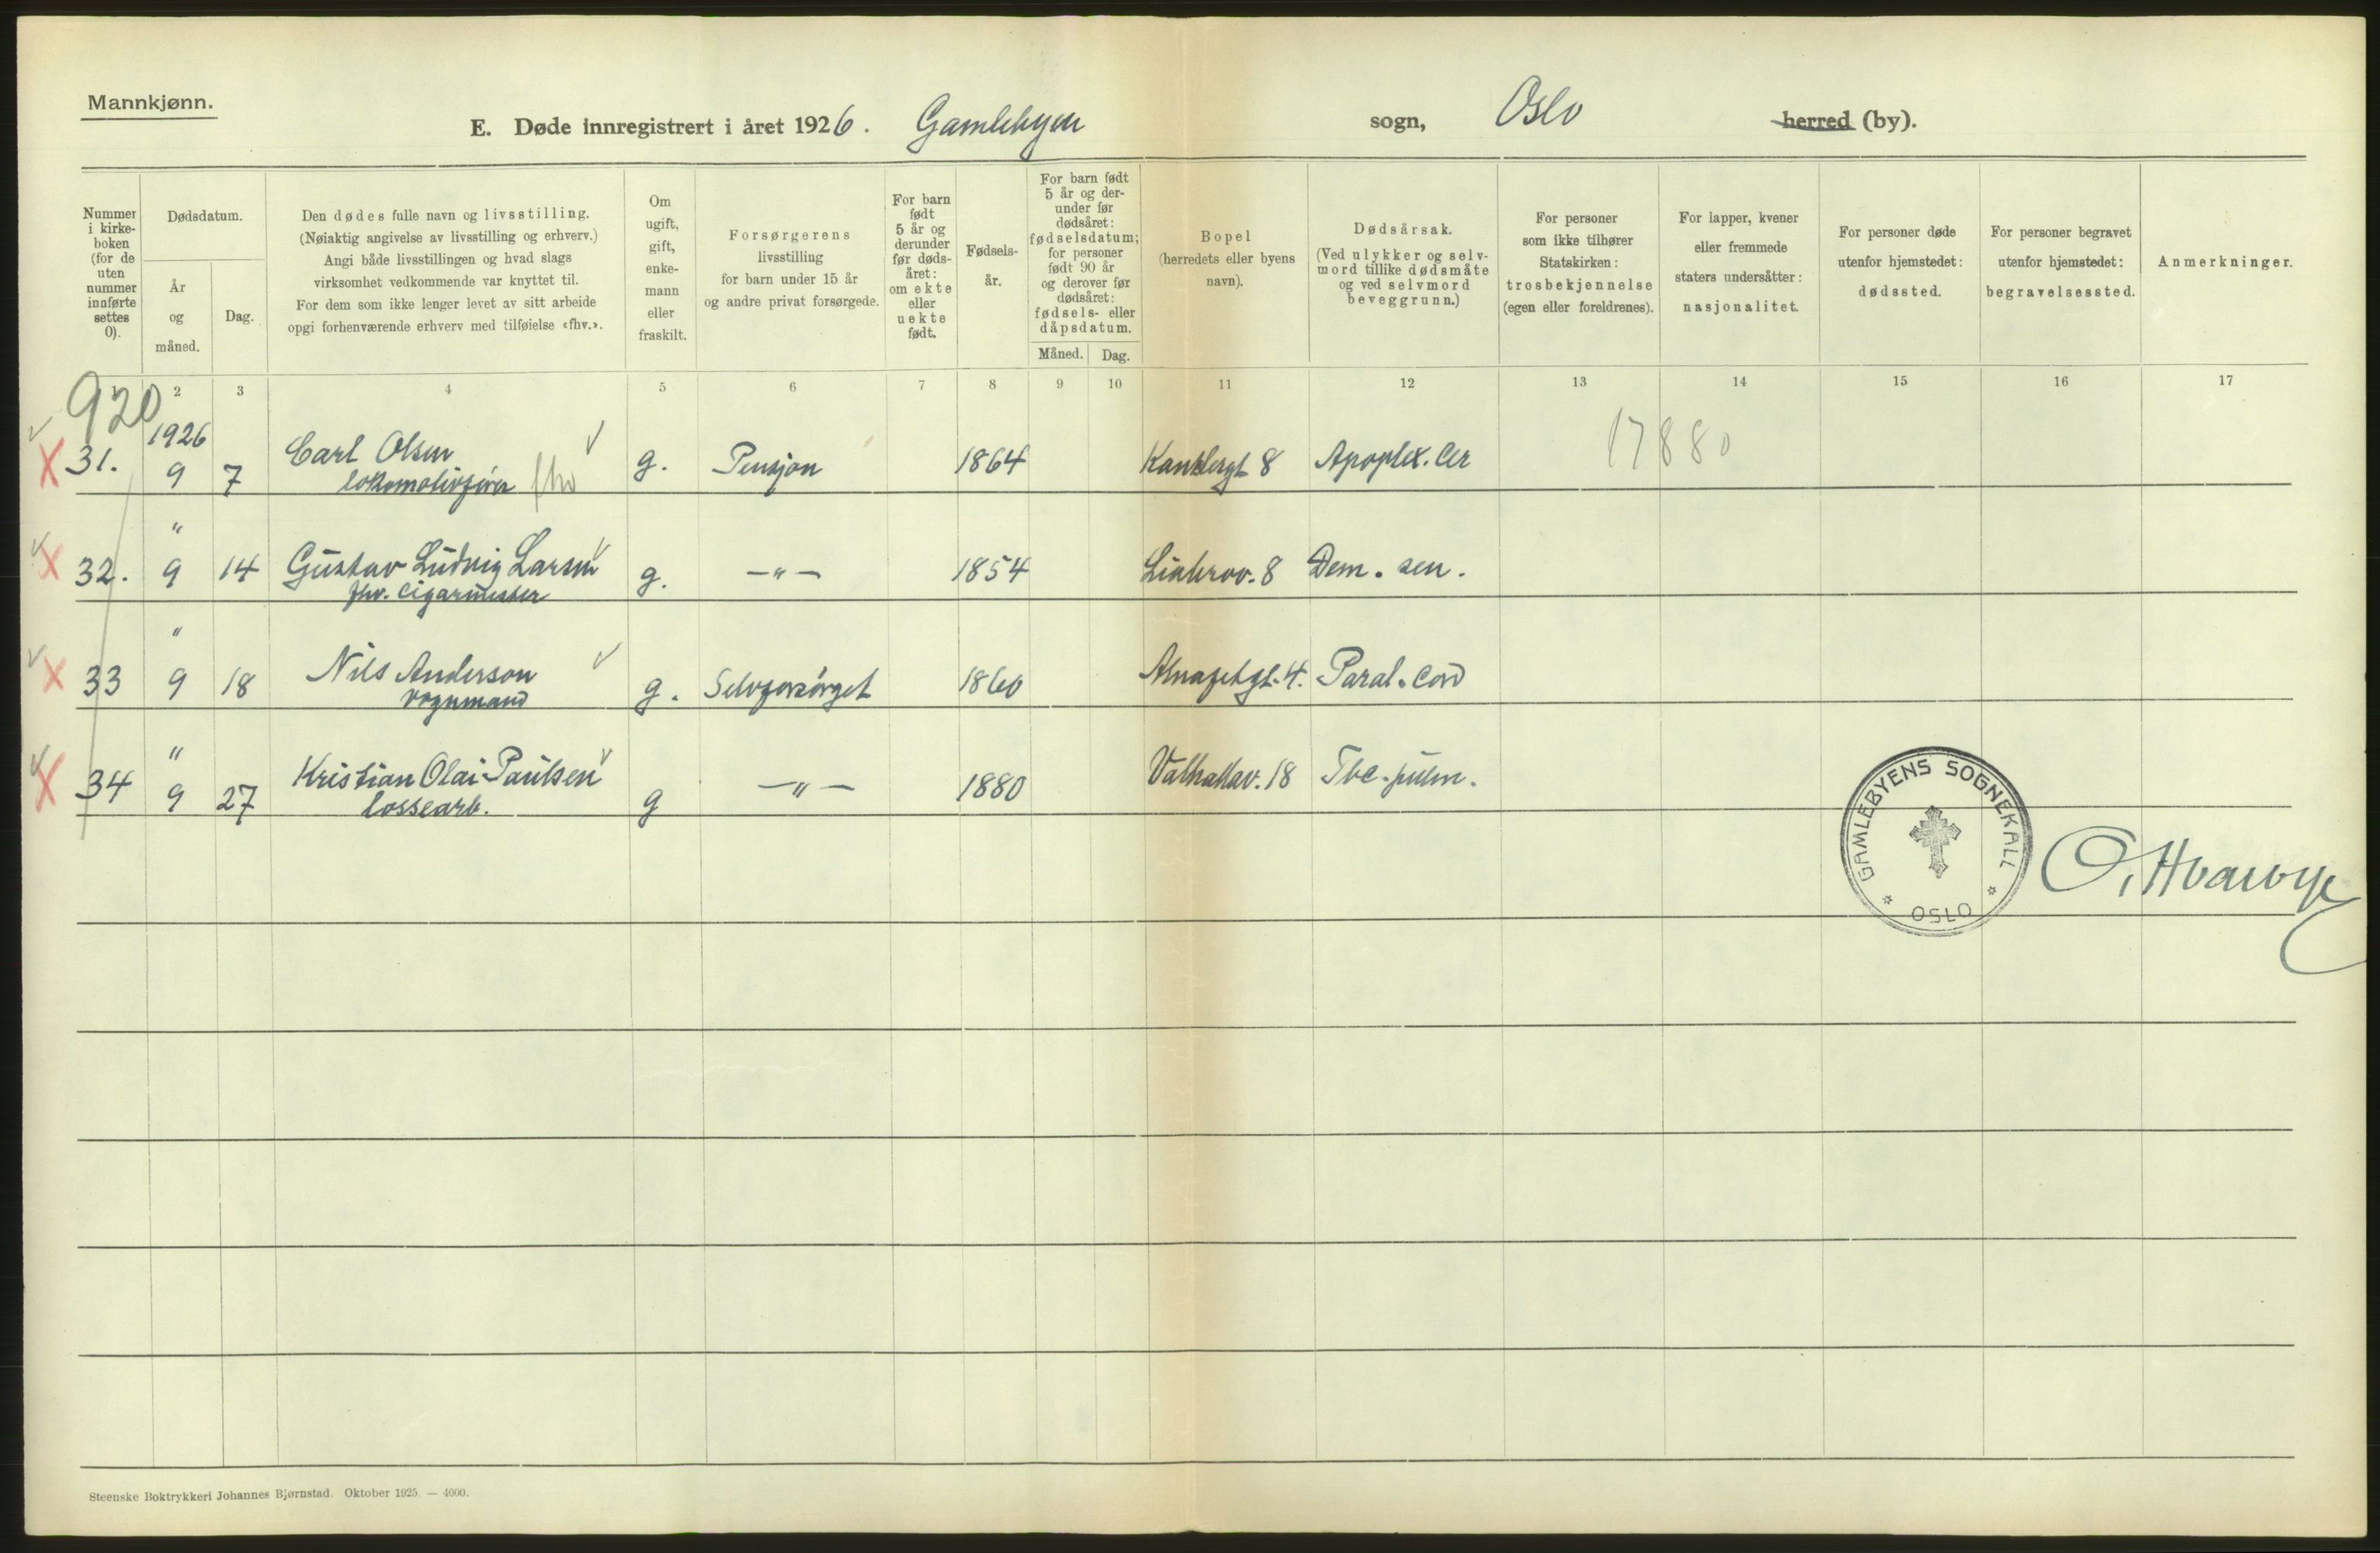 Mannkjønn.
E. Døde innregistrert i året 1926. Gamlebyen sogn, Oslo herred (by).
Nummer i kirke-boken (for de uten nummer innførte settes 0).
Dødsdatum.
År og måned.
Dag.
Den dødes fulle navn og livsstilling.
(Nøiaktig angivelse av livsstilling og erhverv.)
Angi både livsstillingen og hvad slags
virksomhet vedkommende var knyttet til.
For dem som ikke lenger levet av sitt arbeide
opgi forhenværende erhverv med tilføielse «fhv.».
Om ugift, gift, enke-mann eller fraskilt.
Forsørgerens
livsstilling
for barn under 15 år
og andre privat forsørgede.
For barn født 5 år og derunder før døds-året: om ekte eller uekte født.
Fødsels-år.
For barn født 5 år og der-under før dødsåret: fødselsdatum; for personer født 90 år og derover før dødsåret: fødsels- eller dåpsdatum.
Måned. Dag.
Bopel
(herredets eller byens navn).
Dødsårsak.
(Ved ulykker og selv-mord tillike dødsmåte og ved selvmord beveggrunn.)
For personer som ikke tilhører Statskirken: trosbekjennelse (egen eller foreldrenes).
For lapper, kvener eller fremmede staters undersåtter: nasjonalitet.
For personer døde utenfor hjemstedet: dødssted.
For personer begravet utenfor hjemstedet: begravelsessted.
Anmerkninger.
1 2 3 4 5 6 7 8 9 10 11 12 13 14 15 16 17
920
1926
31. 9 7 Carl Olsen g. Pensjon 1864 Kanslergt 8 Apoplex. Cer 17880
lokomotivfører fhv
"
32. 9 14 Gustav Ludvig Larsen g. —"— 1854 Liabrov. 8 Dem. sen.
fhv. Cigarmester
"
33 9 18 Nils Anderson g. Selvforsörget 1860 Alnafetgt. 4. Paral. Cord
vognmand
"
34 9 27 Kristian Olai Paulsen g —"— 1880 Valhallav. 18 Tbc. pulm.
lossearb.
GAMLEBYENS SOGNEKALL
* OSLO *
Steenske Boktrykkeri Johannes Bjørnstad. Oktober 1925. — 4000.